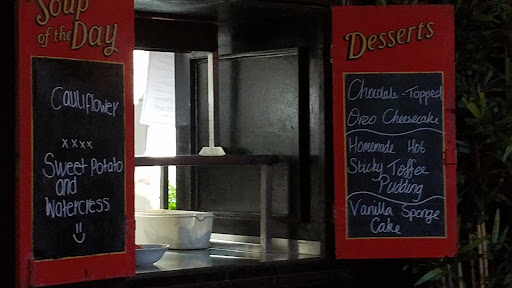 Soup
of the Day
Cauliflower
xxxx
Sweet Potato
and
Watercress
Desserts
Chocolate-Topped
Oreo Cheesecake
Homemade Hot
Sticky Toffee
Pudding
Vanilla Sponge
Cake